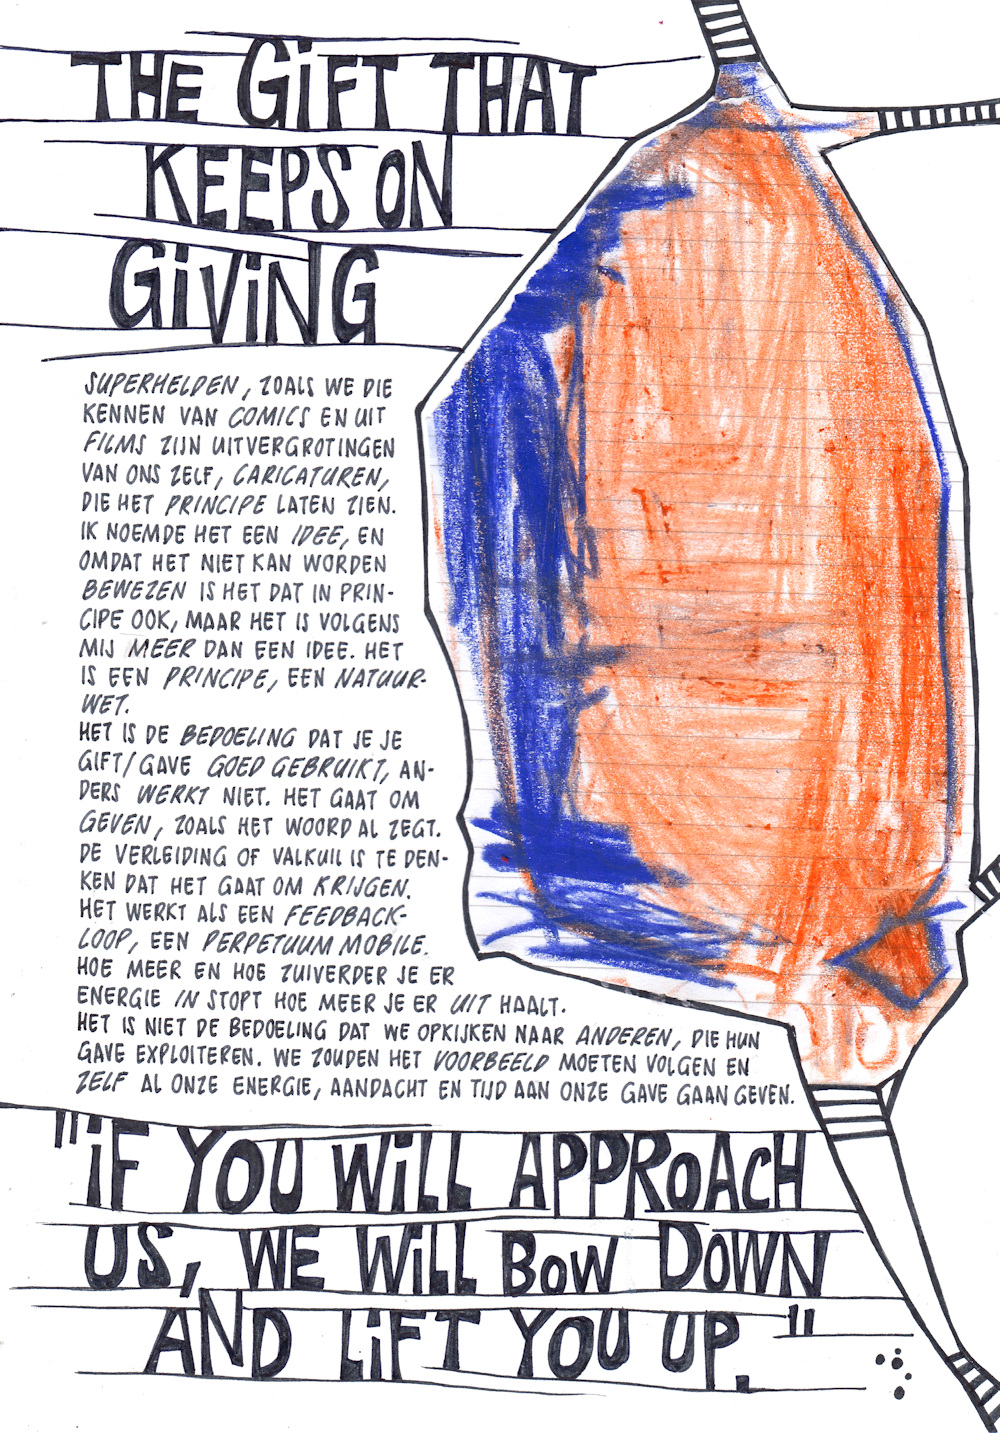 THE GiFT THAT
KEEPS ON
GiViNG
SUPERHELDEN, ZOALS WE DIE
KENNEN VAN COMICS EN UIT
FILMS ZIJN UITVERGROTINGEN
VAN ONS ZELF, CARICATUREN,
DIE HET PRINCIPE LATEN ZIEN.
IK NOEMDE HET EEN IDEE, EN
OMDAT HET NIET KAN WORDEN
BEWEZEN IS HET DAT IN PRIN-
CIPE OOK, MAAR HET IS VOLGENS
MIJ MEER DAN EEN IDEE. HET
IS EEN PRINCIPE, EEN NATUUR-
WET.
HET IS DE BEDOELING DAT JE JE
GIFT/GAVE GOED GEBRUIKT, AN-
DERS WERKT NIET. HET GAAT OM
GEVEN, ZOALS HET WOORD AL ZEGT.
DE VERLEIDING OF VALKUIL IS TE DEN-
KEN DAT HET GAAT OM KRIJGEN.
HET WERKT ALS EEN FEEDBACK-
LOOP, EEN PERPETUUM MOBILE.
HOE MEER EN HOE ZUIVERDER JE ER
ENERGIE IN STOPT HOE MEER JE ER UIT HAALT.
HET IS NIET DE BEDOELING DAT WE OPKIJKEN NAAR ANDEREN, DIE HUN
GAVE EXPLOITEREN. WE ZOUDEN HET VOORBEELD MOETEN VOLGEN EN
ZELF AL ONZE ENERGIE, AANDACHT EN TIJD AAN ONZE GAVE GAAN GEVEN.
"iF YOU WiLL APPROACH
US, WE WiLL BOW DOWN
AND LiFT YOU UP."